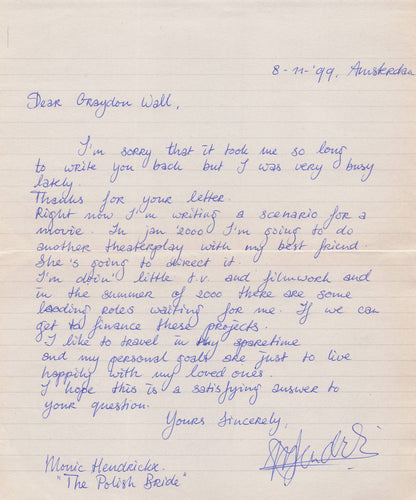 8-11-'99, Amsterdam
Dear Graydon Wall,
I'm sorry that it took me so long
to write you back but I was very busy
lately.
Thanks for your letter.
Right now I'm writing a scenario for a
movie. In jan 2000 I'm going to do
another theaterplay with my best friend.
She's going to direct it.
I'm doin' little t.v. and filmwork and
in the summer of 2000 there are some
leading roles waiting for me. If we can
get to finance these projects.
I like to travel in my sparetime
and my personal goals are just to live
happily with my loved ones.
I hope this is a satisfying answer to
your question.
Yours Sincerely,
Monic Hendrickx
"The Polish Bride"